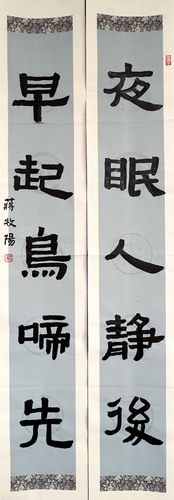 夜眠人静後
早起鳥啼先
蒋牧陽